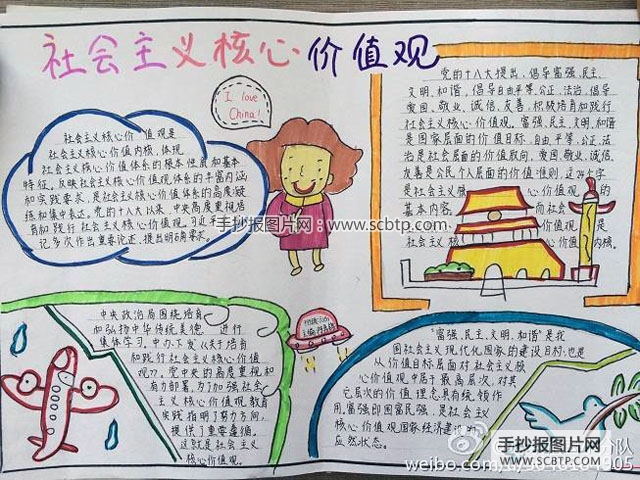 社会主义核心价值观
I love
China!
社会主义核心价值观是
社会主义核心价值内核，体现
社会主义核心价值体系的根本性质和基本
特征，反映社会主义核心价值观体系的丰富内涵
和实践要求，是社会主义核心价值体系的高度凝
练和集中表达。党的十八大以来，中央高度重视培
育和践行社会主义核心价值观。习近平
记多次作出重要论述、提出明确要求。
党的十八大提出，倡导富强、民主、
文明、和谐，倡导自由平等、公正、法治，倡导
爱国、敬业、诚信、友善，积极培育和践行
社会主义核心价值观。富强、民主、文明、和谐
是国家层面的价值目标，自由、平等、公正、法
治是社会层面的价值取向，爱国、敬业、诚信、
友善是公民个人层面的价值准则，这24个字
是社会主义核心价值观的
基本内容。
而社会
主义核心价值观是
社会主义核心价值内核。
中央政治局围绕培育
和弘扬中华传统美德 进行
集体学习，中办下发《关于培育
和践行社会主义核心价值
观》。党中央的高度重视和
有力部署，为了加强社会
主义核心价值观教育
实践指明了努力方向，
提供了重要遵循。
这就是社会主义
核心价值观。
"富强、民主、文明、和谐"是我
国社会主义现代化国家的建设目标，也是
从价值目标层面对社会主义核
心价值观中居于最高层次，对其
它层次的价值理念具有统领作
用。富强即国富民强，是社会主义
核心价值观国家经济建设的
应然状态。
手抄报图片网
www.scbtp.com
手抄报图片网
WWW.SCBTP.COM